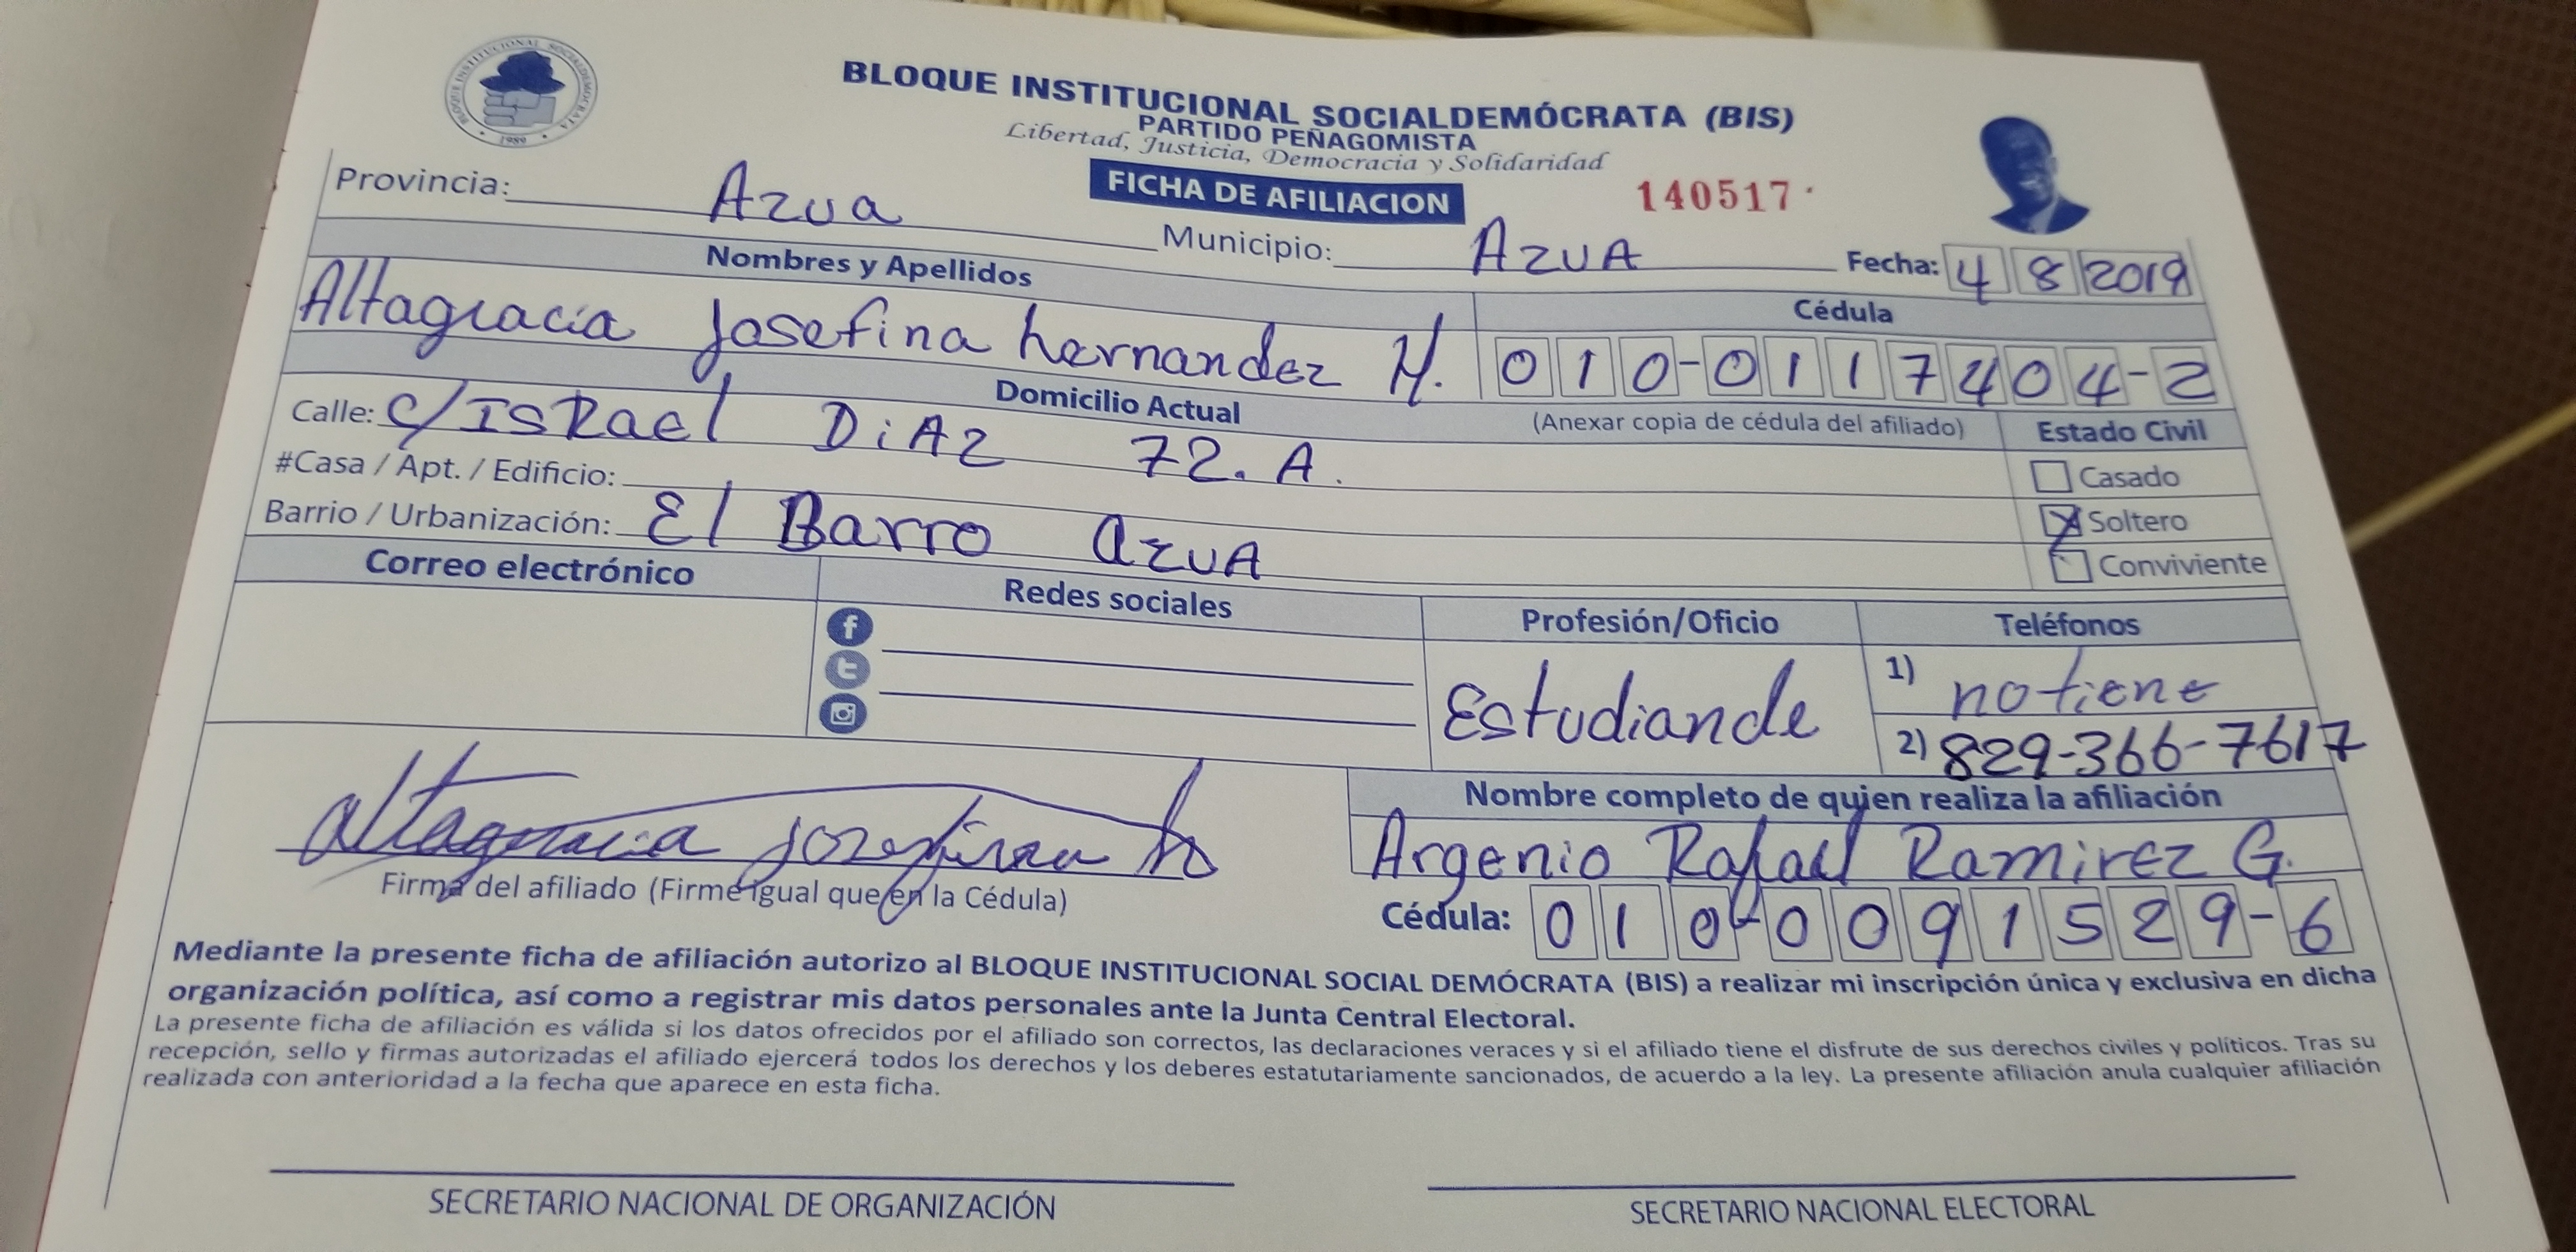 BLOQUE INSTITUCIONAL SOCIALDEMOCRATA • 1989 •
BLOQUE INSTITUCIONAL SOCIALDEMÓCRATA (BIS)
PARTIDO PEÑAGOMISTA
Libertad, Justicia, Democracia y Solidaridad
FICHA DE AFILIACION
140517
Provincia: Azua Municipio: AZUA Fecha: 4 8 2019
Nombres y Apellidos Cédula
Altagracia Josefina hernandez H. 010-0117404-2
Domicilio Actual (Anexar copia de cédula del afiliado) Estado Civil
Calle: C/ISRael DiAz 72. A.
#Casa / Apt. / Edificio: Casado
Barrio / Urbanización: El Barro AZUA Soltero
Conviviente
Correo electrónico Redes sociales Profesión/Oficio Teléfonos
f
t
Estudiande
1) no tiene
2) 829-366-7617
altagracia josefina h
Firma del afiliado (Firme igual que en la Cédula)
Nombre completo de quien realiza la afiliación
Argenio Rafael Ramirez G.
Cédula: 010-0091529-6
Mediante la presente ficha de afiliación autorizo al BLOQUE INSTITUCIONAL SOCIAL DEMÓCRATA (BIS) a realizar mi inscripción única y exclusiva en dicha
organización política, así como a registrar mis datos personales ante la Junta Central Electoral.
La presente ficha de afiliación es válida si los datos ofrecidos por el afiliado son correctos, las declaraciones veraces y si el afiliado tiene el disfrute de sus derechos civiles y políticos. Tras su
recepción, sello y firmas autorizadas el afiliado ejercerá todos los derechos y los deberes estatutariamente sancionados, de acuerdo a la ley. La presente afiliación anula cualquier afiliación
realizada con anterioridad a la fecha que aparece en esta ficha.
SECRETARIO NACIONAL DE ORGANIZACIÓN SECRETARIO NACIONAL ELECTORAL